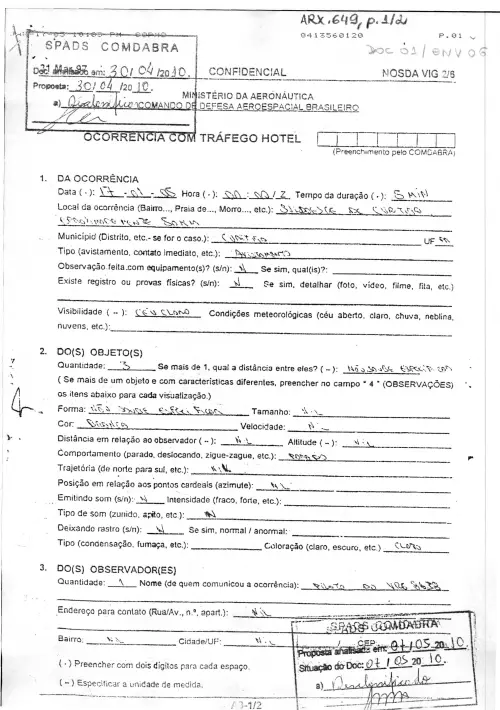 ARX.649, p.1/2
0413560120 P.01
DOC 01 / ENV 06
SPADS COMDABRA
31 Mar 97
Doc analisado em: 30/04/2010.
CONFIDENCIAL
NOSDA VIG 2/6
Proposta: 30/04/2010.
MINISTÉRIO DA AERONÁUTICA
a) Desclassificado
COMANDO DE DEFESA AEROESPACIAL BRASILEIRO
OCORRÊNCIA COM TRÁFEGO HOTEL
(Preenchimento pelo COMDABRA)
1. DA OCORRÊNCIA
Data ( · ): 17 - 01 - 05 Hora ( · ): 00 : 00 / Z Tempo da duração ( · ): 5 MIN
Local da ocorrência (Bairro..., Praia de..., Morro..., etc.): SUDOESTE DE CURITIBA
50NM
Município (Distrito, etc.- se for o caso.): CURITIBA UF PR
Tipo (avistamento, contato imediato, etc.): AVISTAMENTO
Observação feita com equipamento(s)? (s/n): N Se sim, qual(is)?:
Existe registro ou provas físicas? (s/n): N Se sim, detalhar (foto, vídeo, filme, fita, etc.)
Visibilidade ( – ): CÉU CLARO Condições meteorológicas (céu aberto, claro, chuva, neblina,
nuvens, etc.):
2. DO(S) OBJETO(S)
Quantidade: 3 Se mais de 1, qual a distância entre eles? ( – ): NÃO SOUBE ESPECIFICAR
( Se mais de um objeto e com características diferentes, preencher no campo " 4 " (OBSERVAÇÕES)
os itens abaixo para cada visualização.)
Forma: NÃO SOUBE ESPECIFICAR Tamanho: NIL
Cor: BRANCA Velocidade: NIL
Distância em relação ao observador ( – ): NIL Altitude ( – ): NIL
Comportamento (parado, deslocando, zigue-zague, etc.): PARADO
Trajetória (de norte para sul, etc.): NIL
Posição em relação aos pontos cardeais (azimute): NIL
Emitindo som (s/n): N Intensidade (fraco, forte, etc.):
Tipo de som (zunido, apito, etc.): N
Deixando rastro (s/n): N Se sim, normal / anormal:
Tipo (condensação, fumaça, etc.): Coloração (claro, escuro, etc.) CLARO
3. DO(S) OBSERVADOR(ES)
Quantidade: 1 Nome (de quem comunicou a ocorrência): PILOTO DO VRG 8633
Endereço para contato (Rua/Av., n.º, apart.): NIL
SPADS COMDABRA
Bairro: NIL Cidade/UF: NIL CEP
Proposta analisada em: 07/05/2010.
( · ) Preencher com dois dígitos para cada espaço.
Situação do Doc: 07/05/2010.
( – ) Especificar a unidade de medida.
a) Desclassificado
-1/2